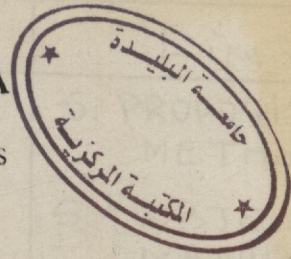 جامعة البليدة
المكتبة المركزية
A
S